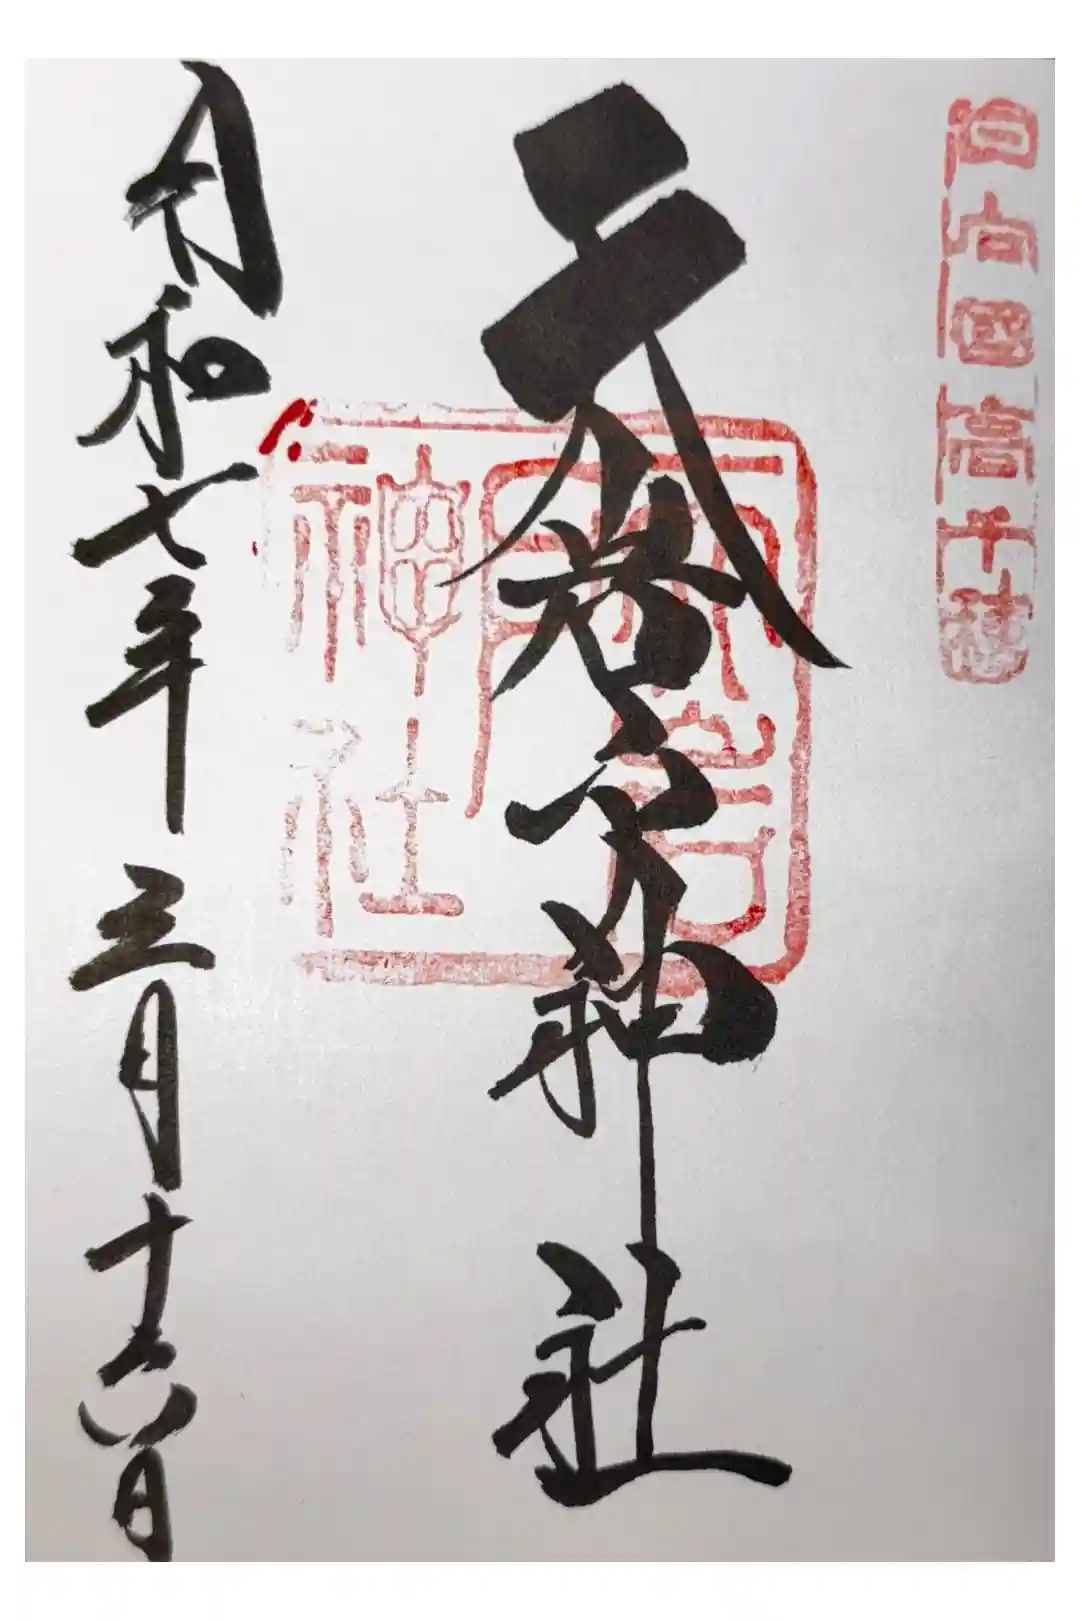 日向國高千穂
天岩戸神社
天岩
戸
神社
令和七年三月十六日